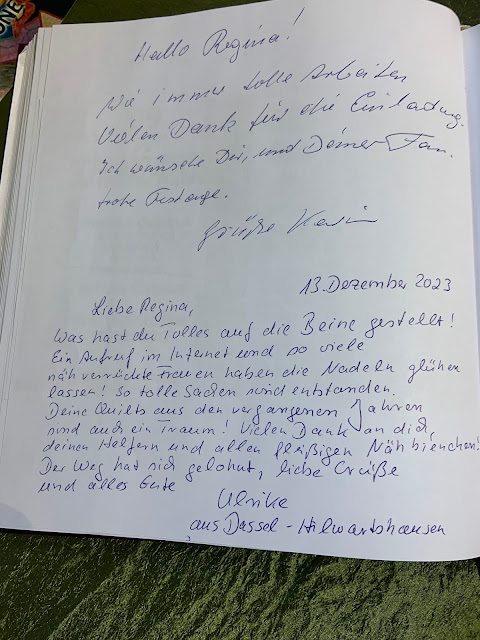 Hallo Regina!
Wie immer tolle Arbeiten
Vielen Dank für die Einladung.
Ich wünsche Dir, und Deiner Fam.
frohe Festage.
Grüße Karin
13. Dezember 2023
Liebe Regina,
Was hast du Tolles auf die Beine gestellt!
Ein Aufruf im Internet und so viele
nähverrückte Frauen haben die Nadeln glühen
lassen! So tolle Sachen sind entstanden.
Deine Quilts aus den vergangenen Jahren
sind auch ein Traum! Vielen Dank an dich,
deinen Helfern und allen fleißigen Nähbienchen!
Der Weg hat sich gelohnt, liebe Grüße
und alles Gute
Ulrike
aus Dassel-Hilwartshausen